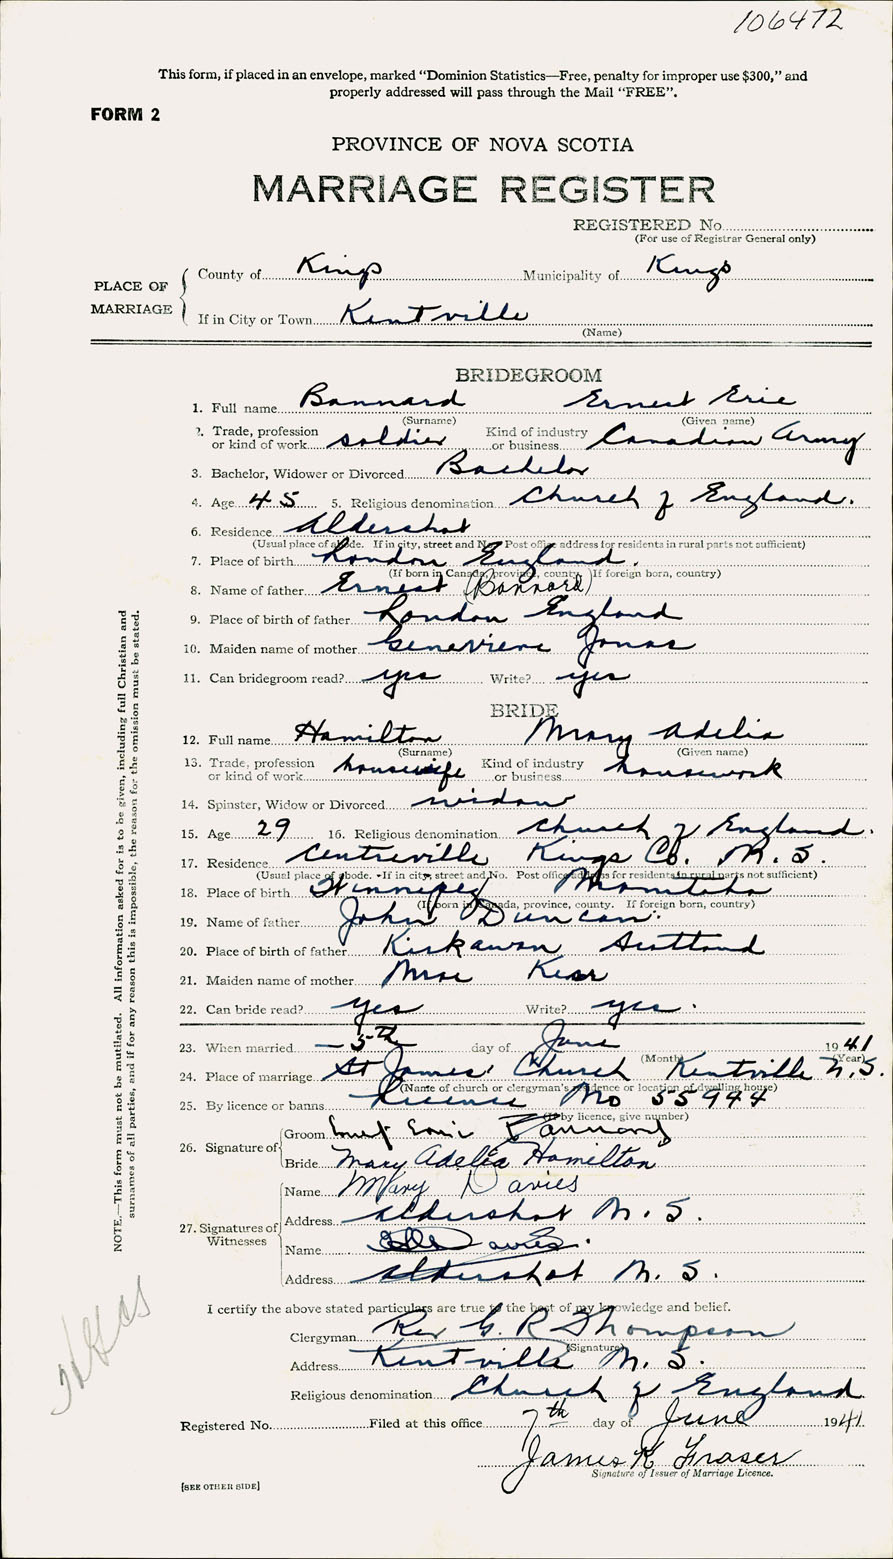 106472
This form, if placed in an envelope, marked "Dominion Statistics—Free, penalty for improper use $300," and
properly addressed will pass through the Mail "FREE".
FORM 2
PROVINCE OF NOVA SCOTIA
MARRIAGE REGISTER
REGISTERED No.
(For use of Registrar General only)
PLACE OF MARRIAGE
County of Kings Municipality of Kings
If in City or Town Kentville
(Name)
BRIDEGROOM
1. Full name Bannard Ernest Eric
(Surname) (Given name)
2. Trade, profession or kind of work soldier Kind of industry or business Canadian Army
3. Bachelor, Widower or Divorced Bachelor
4. Age 45 5. Religious denomination Church of England.
6. Residence Aldershot
(Usual place of abode. If in city, street and No. Post office address for residents in rural parts not sufficient)
7. Place of birth London England.
(If born in Canada, province, county. If foreign born, country)
8. Name of father Ernest (Bannard)
9. Place of birth of father London England
10. Maiden name of mother Genevieve Jonas
11. Can bridegroom read? yes Write? yes
BRIDE
12. Full name Hamilton Mary Adelia
(Surname) (Given name)
13. Trade, profession or kind of work housewife Kind of industry or business housework
14. Spinster, Widow or Divorced widow
15. Age 29 16. Religious denomination Church of England.
17. Residence Centreville Kings Co. N. S.
(Usual place of abode. If in city, street and No. Post office address for residents in rural parts not sufficient)
18. Place of birth Winnipeg Manitoba
(If born in Canada, province, county. If foreign born, country)
19. Name of father John Duncan.
20. Place of birth of father Kirkawan Scotland
21. Maiden name of mother Mrae Kerr
22. Can bride read? yes Write? yes.
23. When married 5th day of June 1941
(Month) (Year)
24. Place of marriage St James' Church Kentville N.S.
(Name of church or clergyman's residence or location of dwelling house)
25. By licence or banns License No 55944
(If by licence, give number)
26. Signature of
Groom Ernest Eric Bannard
Bride Mary Adelia Hamilton
27. Signatures of Witnesses
Name Mary Davies
Address Aldershot N. S.
Name Davies.
Address Aldershot N. S.
I certify the above stated particulars are true to the best of my knowledge and belief.
Clergyman Rev G. R Thompson
(Signature)
Address Kentville N. S.
Religious denomination Church of England
Registered No. Filed at this office 7th day of June 1941
James K Fraser
Signature of Issuer of Marriage Licence.
[SEE OTHER SIDE]
NOTE.—This form must not be mutilated. All information asked for is to be given, including full Christian and
surnames of all parties, and if for any reason this is impossible, the reason for the omission must be stated.